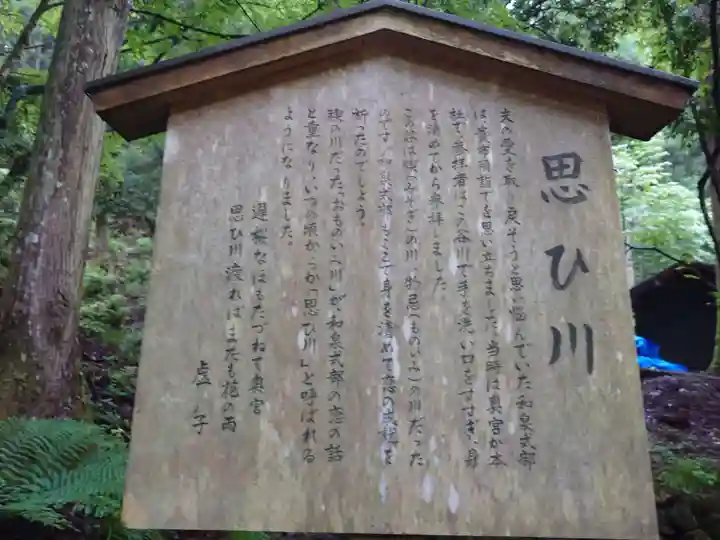 思ひ川
夫の愛を取り戻そうと思い悩んでいた和泉式部
は、貴布禰詣でを思い立ちました。当時は奥宮が本
社で、参拝者はこの谷川で手を洗い口をすすぎ、身
を清めてから参拝しました。
この谷川は禊(みそぎ)の川、物忌(ものいみ)の川だった
のです。和泉式部もここで身を清めて恋の成就を
祈ったのでしょう。
禊の川だった「おものいみ川」が、和泉式部の恋の話
と重なり、いつの頃からか「思ひ川」と呼ばれる
ようになりました。
遅桜なほもたづねて奥宮
思ひ川渡ればまたも花の雨
虚子